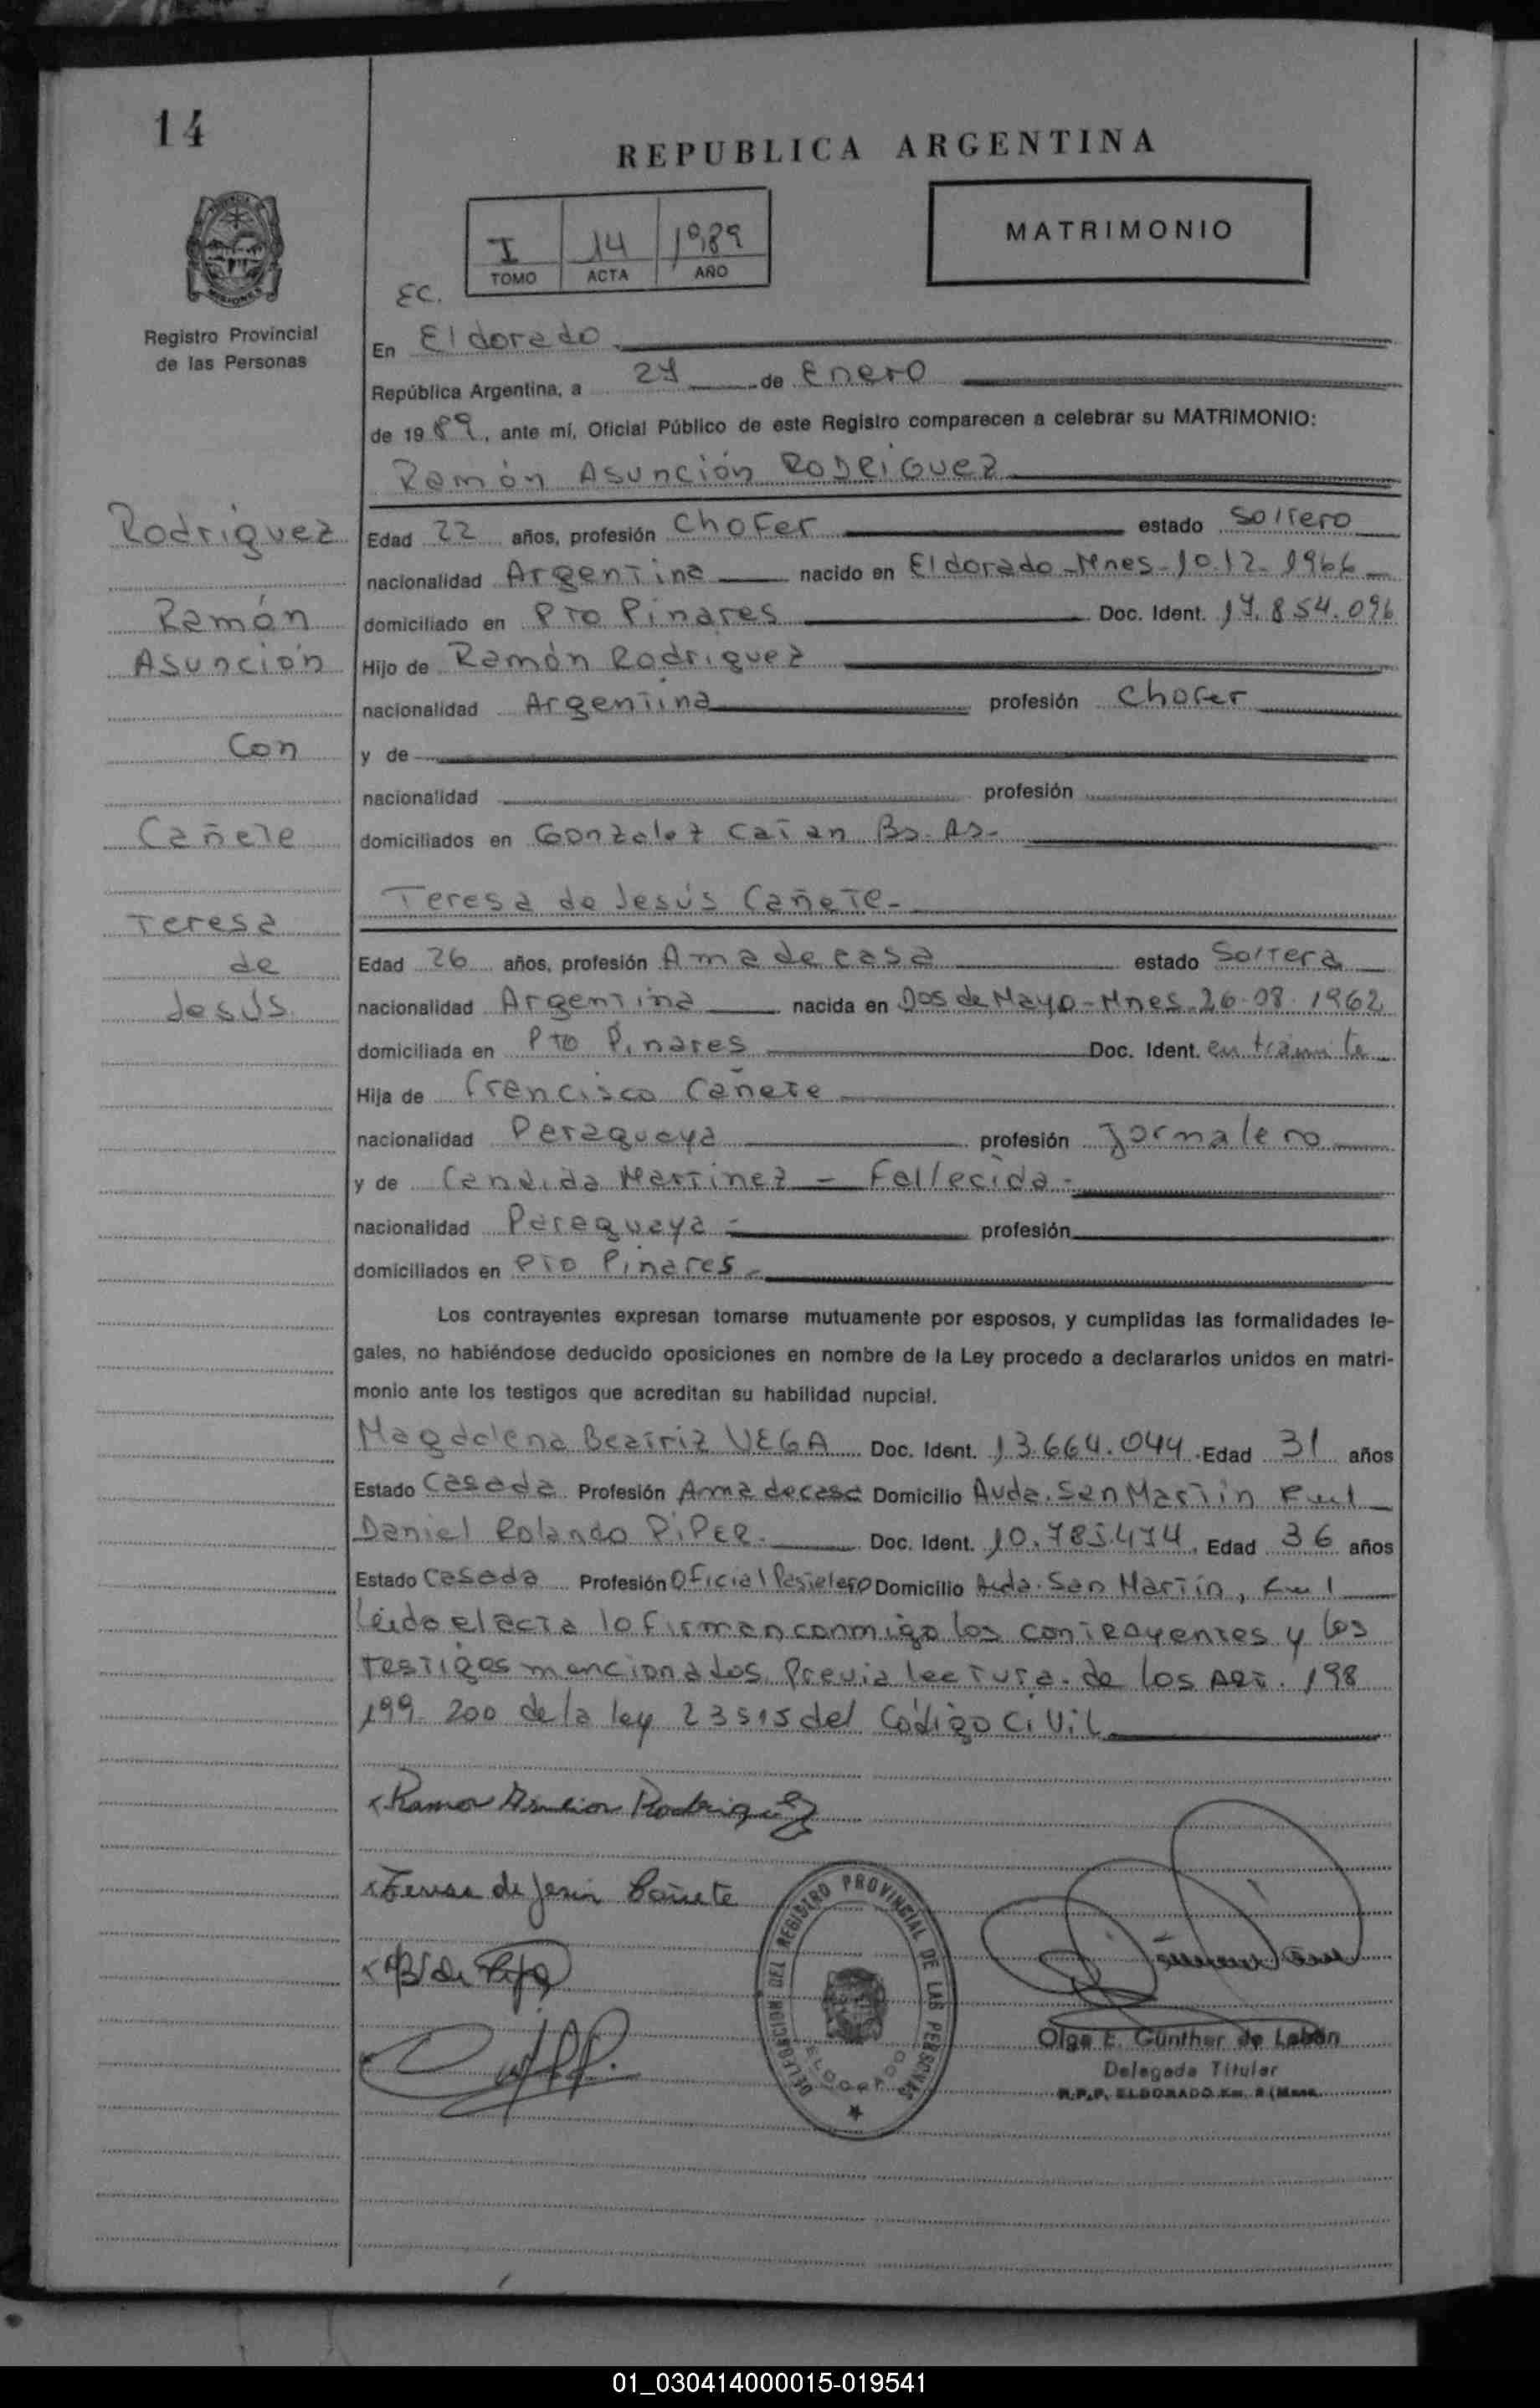 14
REPUBLICA ARGENTINA
I 14 1989
TOMO ACTA AÑO
MATRIMONIO
Registro Provincial
de las Personas
EC.
En Eldorado
República Argentina, a 27 de Enero
de 1989, ante mí, Oficial Público de este Registro comparecen a celebrar su MATRIMONIO:
Ramón Asunción RODRIGUEZ
Rodríguez
Ramón
Asunción
Con
Cañete
Teresa
de
Jesús
Edad 22 años, profesión Chofer estado Soltero
nacionalidad Argentina nacido en Eldorado-Mnes-10.12.1966
domiciliado en Pto Pinares Doc. Ident. 17.854.096
Hijo de Ramón Rodriguez
nacionalidad Argentina profesión Chofer
y de
nacionalidad profesión
domiciliados en Gonzalez Catan Bs. As-
Teresa de Jesús Cañete-
Edad 26 años, profesión Ama de casa estado Soltera
nacionalidad Argentina nacida en Dos de Mayo-Mnes-26-08-1962
domiciliada en Pto Pinares Doc. Ident. en trámite
Hija de Francisco Cañete
nacionalidad Paraguaya profesión Jornalero
y de Candida Martinez - Fallecida-
nacionalidad Paraguaya- profesión
domiciliados en Pto Pinares-
Los contrayentes expresan tomarse mutuamente por esposos, y cumplidas las formalidades le-
gales, no habiéndose deducido oposiciones en nombre de la Ley procedo a declararlos unidos en matri-
monio ante los testigos que acreditan su habilidad nupcial.
Magdalena Beatriz VEGA Doc. Ident. 13.664.044 Edad 31 años
Estado Casada Profesión Ama de casa Domicilio Avda. San Martin
Daniel Rolando PIPER. Doc. Ident. 10.785.474. Edad 36 años
Estado Casado Profesión Oficial Pastelero Domicilio Avda. San Martin,
Leido el acta lo firman conmigo los contrayentes y los
testigos mencionados. Previa lectura de los Art. 198
199-200 de la ley 23515 del Código Civil
Ramon Asuncion Rodriguez
Teresa de Jesus Cañete
DELEGACION DEL REGISTRO PROVINCIAL DE LAS PERSONAS
ELDORADO
Olga E. Günther de Labán
Delegada Titular
R.P.P. ELDORADO Km. 2 (Mnes.
01_030414000015-019541